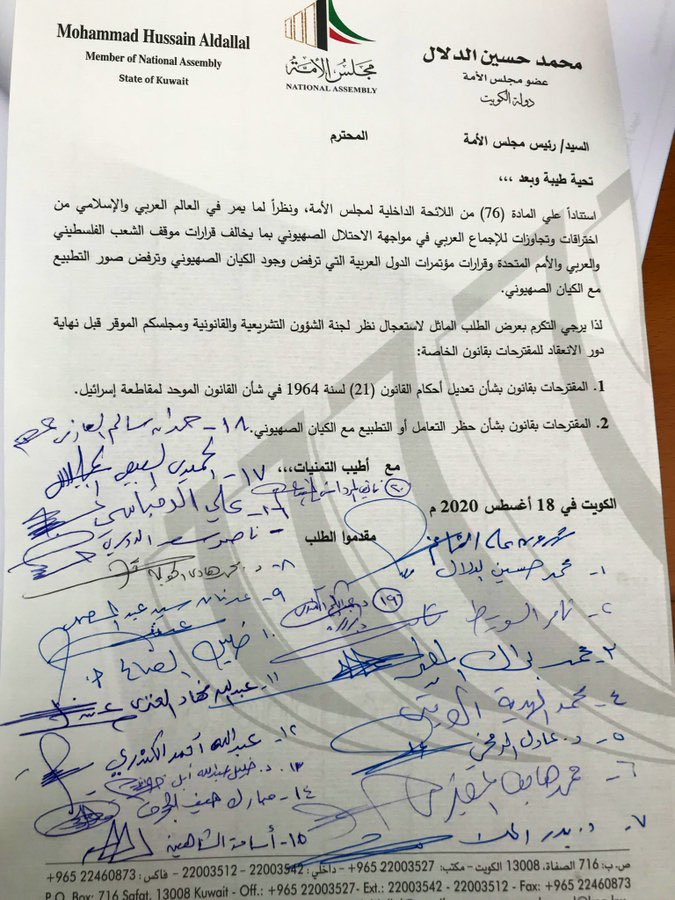 Mohammad Hussain Aldallal
Member of National Assembly
State of Kuwait
مجلس الأمة
NATIONAL ASSEMBLY
محمد حسين الدلال
عضو مجلس الأمة
دولة الكويت
السيد/ رئيس مجلس الأمة المحترم
تحية طيبة وبعد ،،،
استناداً علي المادة (76) من اللائحة الداخلية لمجلس الأمة، ونظراً لما يمر في العالم العربي والإسلامي من
اختراقات وتجاوزات للإجماع العربي في مواجهة الاحتلال الصهيوني بما يخالف قرارات موقف الشعب الفلسطيني
والعربي والأمم المتحدة وقرارات مؤتمرات الدول العربية التي ترفض وجود الكيان الصهيوني وترفض صور التطبيع
مع الكيان الصهيوني.
لذا يرجي التكرم بعرض الطلب الماثل لاستعجال نظر لجنة الشؤون التشريعية والقانونية ومجلسكم الموقر قبل نهاية
دور الانعقاد للمقترحات بقانون الخاصة:
1. المقترحات بقانون بشأن تعديل أحكام القانون (21) لسنة 1964 في شأن القانون الموحد لمقاطعة إسرائيل.
2. المقترحات بقانون بشأن حظر التعامل أو التطبيع مع الكيان الصهيوني.
مع أطيب التمنيات،،،
الكويت في 18 أغسطس 2020 م
مقدموا الطلب
١- محمد حسين الدلال
٢- ثامر السويط
٣- محمد براك
٤- محمد الهدية
٥- د. عادل الدمخي
٦- محمد هايف المطيري
٧- د. بدر الملا
٨- د. محمد هادي الحويلة
٩- عدنان سيد عبدالصمد
١٠- خليل الصالح
١١- عبدالله فهاد العنزي
١٢- عبدالله أحمد الكندري
١٣- د. خليل عبدالله أبل
١٤- مبارك هيف الحجرف
١٥- أسامة الشاهين
ناصر الدوسري
١٦- علي الدقباسي
١٧- الحميدي السبيعي
١٨- حمدان سالم العازمي
١٩
٢٠
ص.ب: 716 الصفاة، 13008 الكويت - مكتب: 22003527 965+ - داخلي: 22003542 - 22003512 - فاكس: 22460873 965+
P.O. Box: 716 Safat, 13008 Kuwait - Off.: +965 22003527- Ext.: 22003542 - 22003512 - Fax: +965 22460873